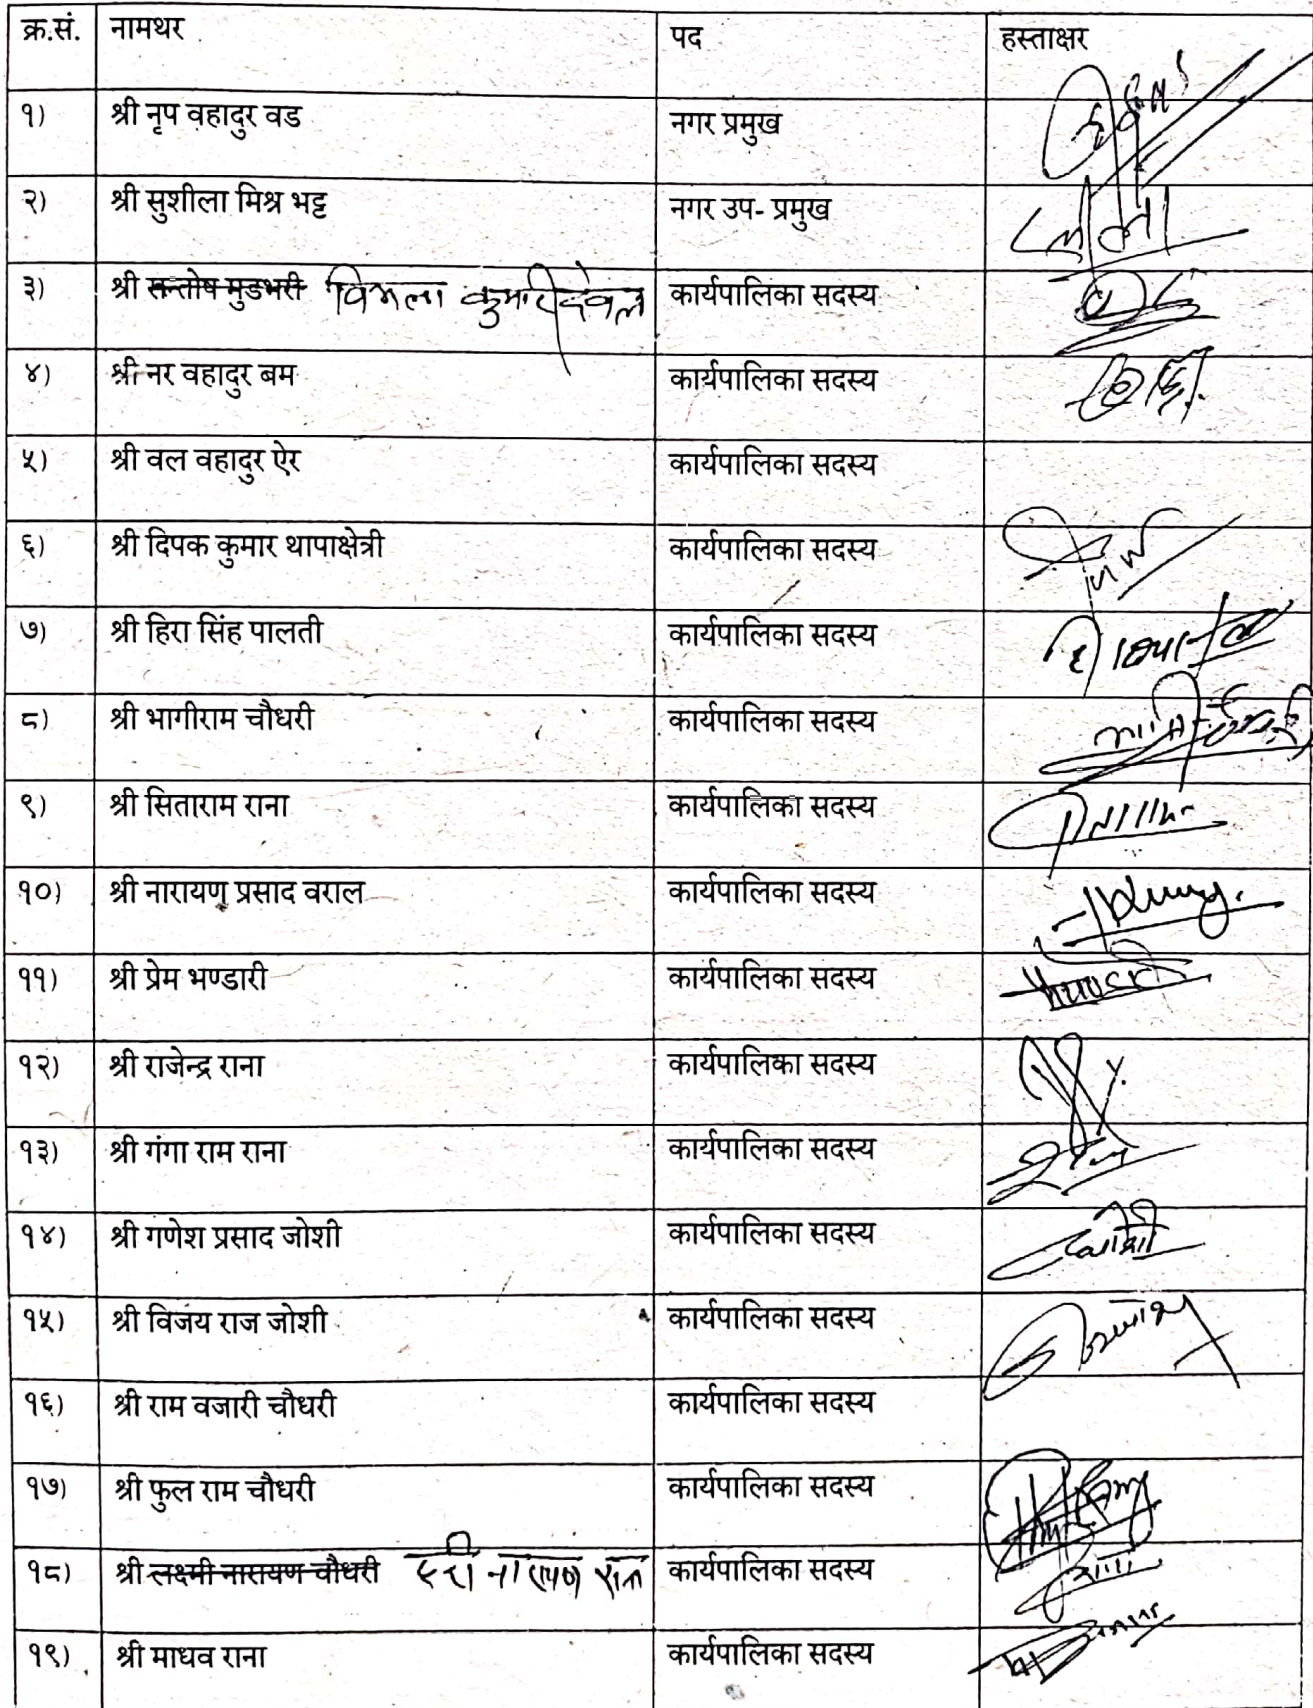 क्र.सं. नामथर पद हस्ताक्षर
१) श्री नृप वहादुर वड नगर प्रमुख
२) श्री सुशीला मिश्र भट्ट नगर उप- प्रमुख
३) श्री सन्तोष मुडभरी विमला कुमारी देवल कार्यपालिका सदस्य
४) श्री नर वहादुर बम कार्यपालिका सदस्य
५) श्री वल वहादुर ऐर कार्यपालिका सदस्य
६) श्री दिपक कुमार थापाक्षेत्री कार्यपालिका सदस्य
७) श्री हिरा सिंह पालती कार्यपालिका सदस्य
८) श्री भागीराम चौधरी कार्यपालिका सदस्य
९) श्री सिताराम राना कार्यपालिका सदस्य
१०) श्री नारायण प्रसाद वराल कार्यपालिका सदस्य
११) श्री प्रेम भण्डारी कार्यपालिका सदस्य
१२) श्री राजेन्द्र राना कार्यपालिका सदस्य
१३) श्री गंगा राम राना कार्यपालिका सदस्य
१४) श्री गणेश प्रसाद जोशी कार्यपालिका सदस्य जोशी
१५) श्री विजय राज जोशी कार्यपालिका सदस्य
१६) श्री राम वजारी चौधरी कार्यपालिका सदस्य
१७) श्री फुल राम चौधरी कार्यपालिका सदस्य
१८) श्री लक्ष्मी नारायण चौधरी हरी नारायण राना कार्यपालिका सदस्य
१९) श्री माधव राना कार्यपालिका सदस्य